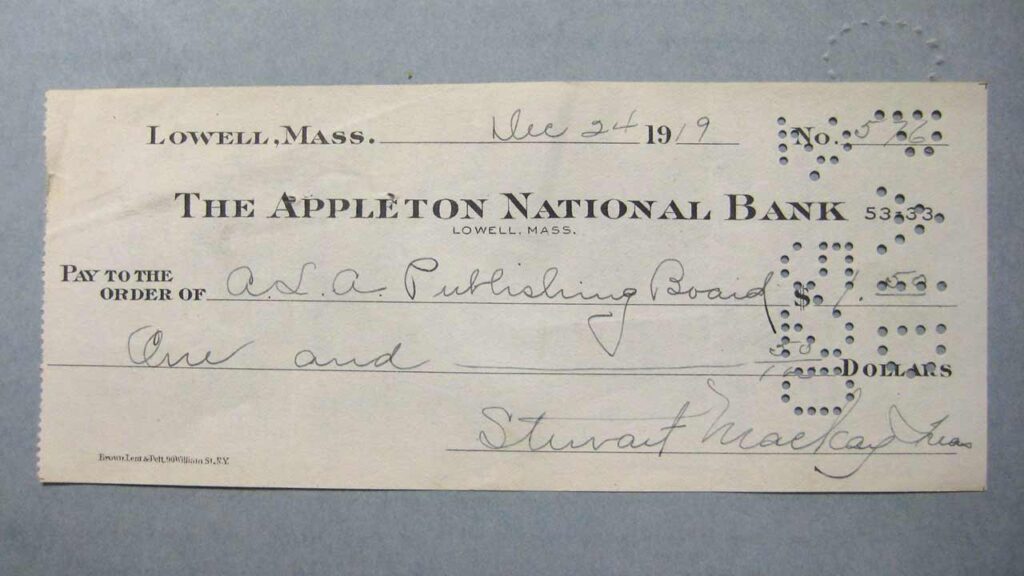 LOWELL, MASS. Dec 24 1919 No. 576
THE APPLETON NATIONAL BANK 53-33
LOWELL, MASS.
PAY TO THE
ORDER OF A.L.A. Publishing Board $ 1.50
One and 50/100 DOLLARS
Stewart Mackay Treas
Brown, Lent & Pett, 90 William St., N.Y.